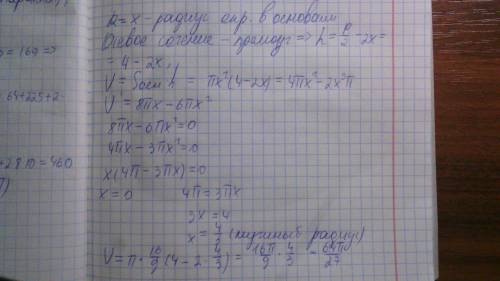 R = x - радиус окр. в основании
Осевое сечение - прямоуг => h = P/2 - 2x =
= 4 - 2x
V = Sосн h = πx²(4-2x) = 4πx² - 2x³π
V' = 8πx - 6πx²
8πx - 6πx² = 0
4πx - 3πx² = 0
x(4π - 3πx) = 0
x = 0 4π = 3πx
3x = 4
x = 4/3 (нужный радиус)
V = π · 16/9 (4 - 2 · 4/3) = 16π/9 · 4/3 = 64π/27
= 169 =>
64+225+2·
+2810=460